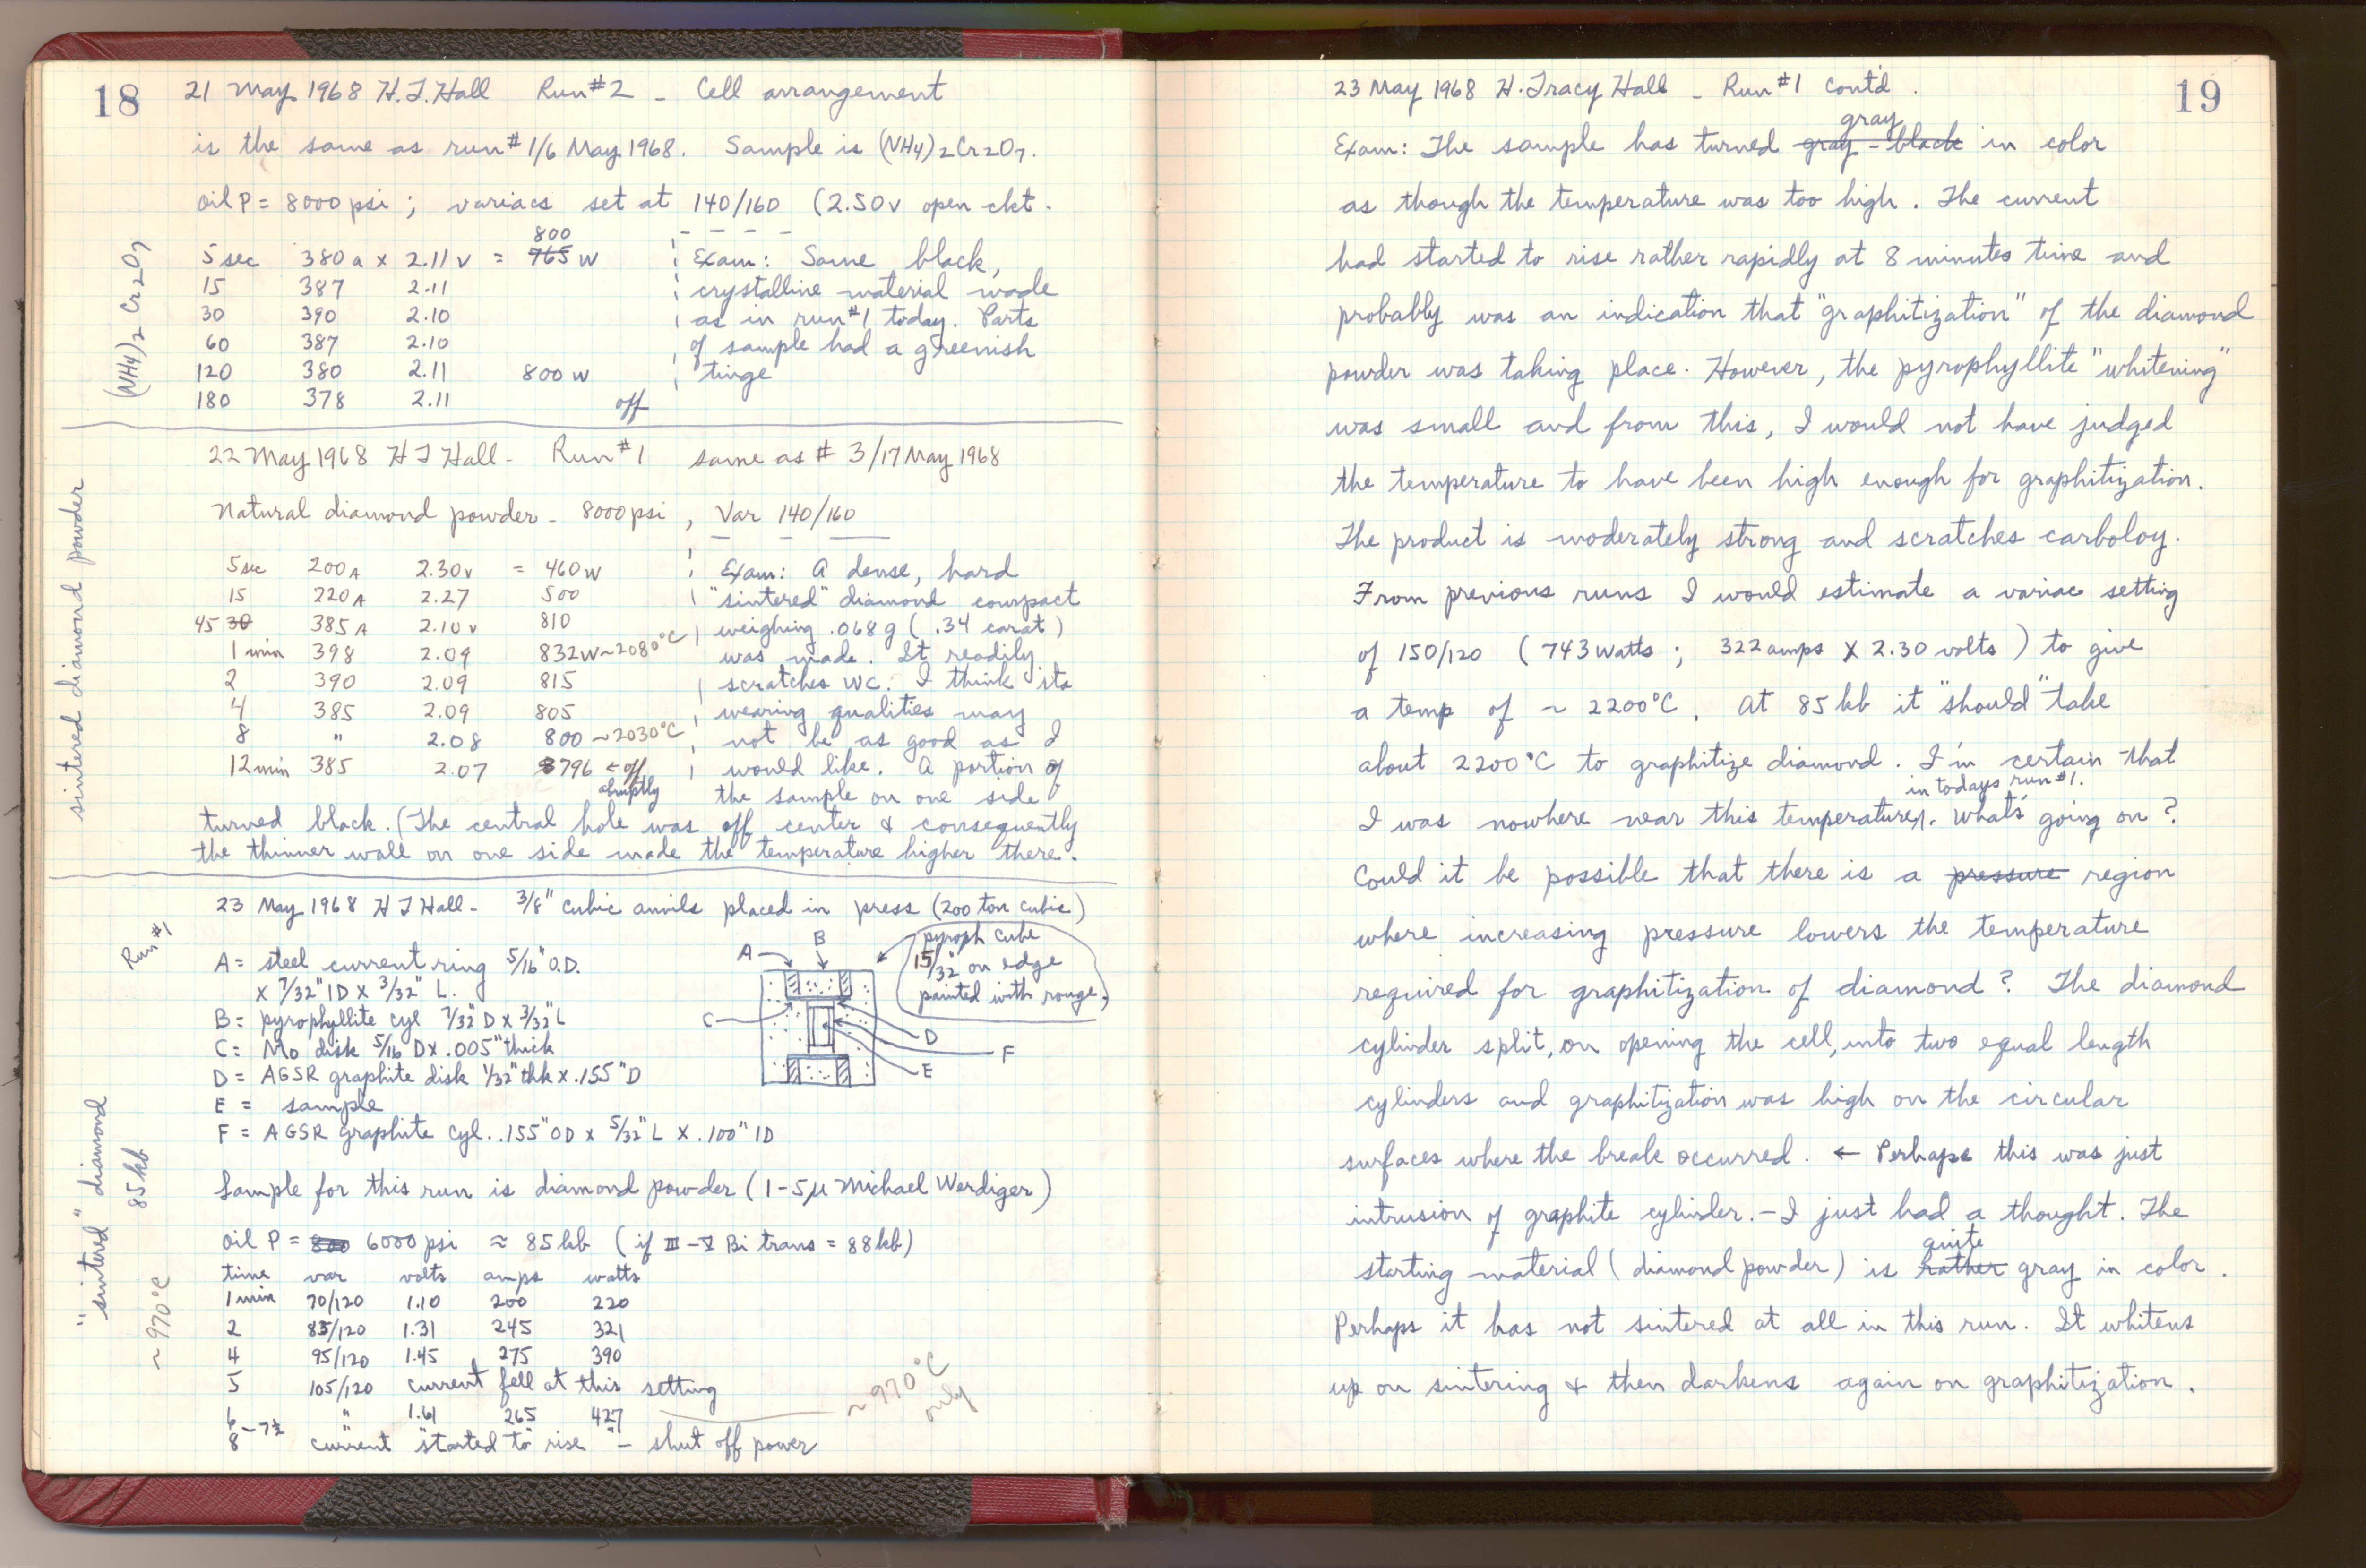 18
21 May 1968 H.T. Hall Run #2 - Cell arrangement
is the same as run # 1/6 May 1968. Sample is (NH4)2Cr2O7.
oil P = 8000 psi ; variacs set at 140/160 (2.50v open ckt.
(NH4)2 Cr2O7
800
5 sec 380 a x 2.11 v = 765 w
15 387 2.11
30 390 2.10
60 387 2.10
120 380 2.11 800 w
180 378 2.11 off
Exam: Same black,
crystalline material made
as in run #1 today. Parts
of sample had a greenish
tinge
sintered diamond powder
22 May 1968 H T Hall - Run #1 same as # 3/17 May 1968
Natural diamond powder - 8000 psi , Var 140/160
5 sec 200 A 2.30v = 460 w
15 220 A 2.27 500
45 30 385 A 2.10 v 810
1 min 398 2.09 832W ~2080°C
2 390 2.09 815
4 385 2.09 805
8 " 2.08 800 ~2030°C
12 min 385 2.07 796 ← off
abruptly
Exam: A dense, hard
"sintered" diamond compact
weighing .068 g ( .34 carat )
was made. It readily
scratches WC. I think its
wearing qualities may
not be as good as I
would like. A portion of
the sample on one side
turned black. (The central hole was off center & consequently
the thinner wall on one side made the temperature higher there.
23 May 1968 H T Hall - 3/8" cubic anvils placed in press (200 ton cubic)
Run #1
A = steel current ring 5/16" O.D.
x 7/32" ID x 3/32" L.
B = pyrophyllite cyl 7/32" D x 3/32" L
C = Mo disk 5/16 D x .005" thick
D = AGSR graphite disk 1/32" thk x .155" D
E = sample
F = AGSR graphite cyl. .155" OD x 5/32" L x .100" ID
A
B
C
D
F
E
pyroph cube
15/32" on edge
painted with rouge.
"sintered" diamond
85 kb
~970°C
Sample for this run is diamond powder (1-5μ Michael Werdiger)
oil P = 800 6000 psi ≈ 85 kb (if III-V Bi trans = 88 kb)
time var volts amps watts
1 min 70/120 1.10 200 220
2 85/120 1.31 245 321
4 95/120 1.45 275 390
5 105/120 current fell at this setting
6 " 1.61 265 427
~970°C
only
- 7½ " " "
8 current started to rise - shut off power
19
23 May 1968 H. Tracy Hall - Run #1 cont'd .
gray
Exam: The sample has turned gray - black in color
as though the temperature was too high. The current
had started to rise rather rapidly at 8 minutes time and
probably was an indication that "graphitization" of the diamond
powder was taking place. However, the pyrophyllite "whitening"
was small and from this, I would not have judged
the temperature to have been high enough for graphitization.
The product is moderately strong and scratches carboloy.
From previous runs I would estimate a variac setting
of 150/120 (743 watts ; 322 amps X 2.30 volts) to give
a temp of ~ 2200°C. At 85 kb it "should" take
about 2200°C to graphitize diamond. I'm certain that
in todays run #1.
I was nowhere near this temperature. What's going on?
Could it be possible that there is a pressure region
where increasing pressure lowers the temperature
required for graphitization of diamond? The diamond
cylinder split, on opening the cell, into two equal length
cylinders and graphitization was high on the circular
surfaces where the break occurred. ← Perhaps this was just
intrusion of graphite cylinder. - I just had a thought. The
quite
starting material (diamond powder) is rather gray in color.
Perhaps it has not sintered at all in this run. It whitens
up on sintering & then darkens again on graphitization.